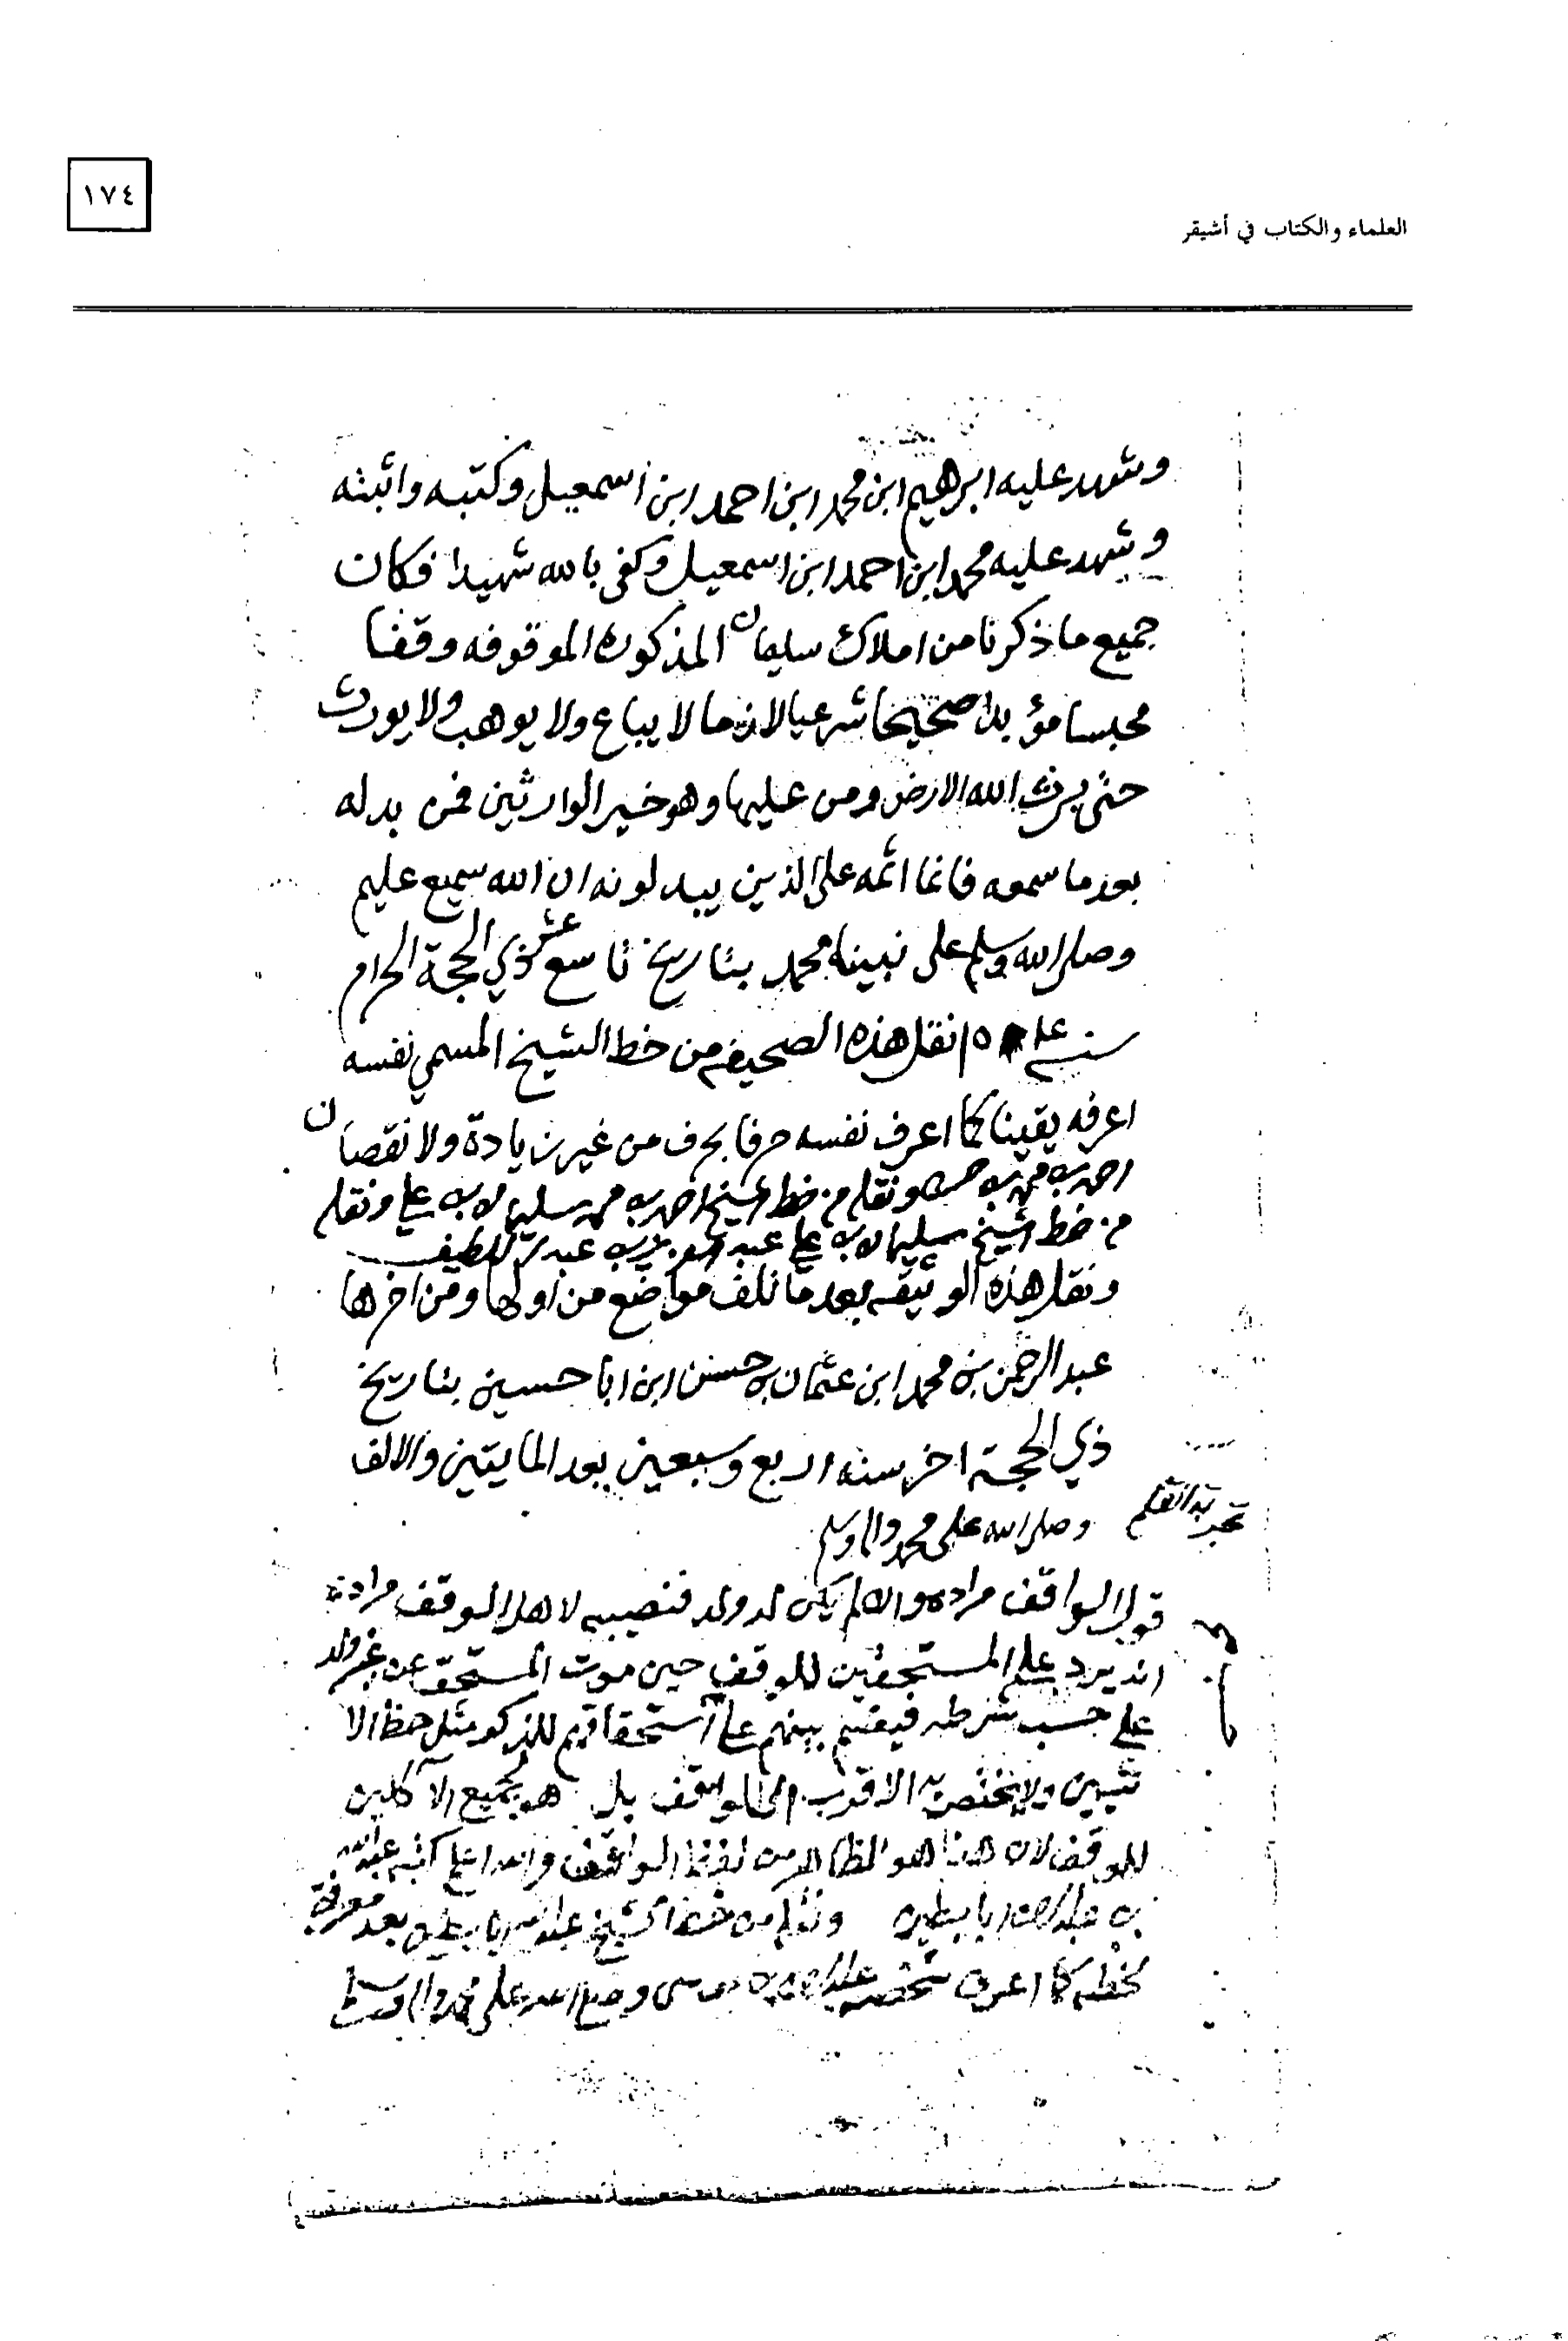 ١٧٤
العلماء والكتاب في أشيقر
وشهد عليه ابرهيم ابن محمد ابن احمد ابن اسمعيل وكتبه واثبته
وشهد عليه محمد ابن احمد ابن اسمعيل وكفى بالله شهيدا فكان
جميع ما ذكرنا من املاك سليمان المذكوره الموقوفه وقفا
محبسا مؤبدا صحيحا شرعيا لازما لا يباع ولا يوهب ولا يورث
حتى يرث الله الارض ومن عليها وهو خير الوارثين فمن بدله
بعد ما سمعه فانما اثمه على الذين يبدلونه ان الله سميع عليم
وصلى الله وسلم على نبينا محمد بتاريخ تاسع عشر ذي الحجة الحرام
نقل هذه الصحيفه من خط الشيخ المسمي نفسه
اعرفه يقينا كما اعرف نفسه حرفا بحرف من غير زيادة ولا نقصان
احمد بن محمد بن حسن ونقله من خط الشيخ احمد بن محمد سليمان بن علي ونقله
من خط الشيخ سليمان بن علي عبد العزيز بن عبد اللطيف
ونقل هذه الوثيقه بعد ما تلف مواضع من اولها ومن اخرها
عبد الرحمن بن محمد ابن عثمان بن حسن ابن ابا حسين بتاريخ
ذي الحجة اخر سنه اربع وسبعين بعد المايتين والالف
وصلى الله على محمد واله وسلم
قول الواقف مراده وان لم يكن له ولد فنصيبه لاهل الوقف مراده
انه يرد على المستحقين للوقف حين موت المستحق عن غير ولد
على حسب شرطه فيقسم بينهم على استحقاقهم للذكر مثل حظ الا
نثيين ولا يختص به الاقرب الى الواقف بل هو لجميع الآكلين
للوقف لان هذا هو الظاهر من لفظ الواقف والله اعلم كتبه عبد الله
بن عبد الرحمن ابا بطين ونقله من خط الشيخ عبد الله ابا بطين بعد معرفة
لخطه كما اعرف شخصه وصلى الله على محمد واله وسلم